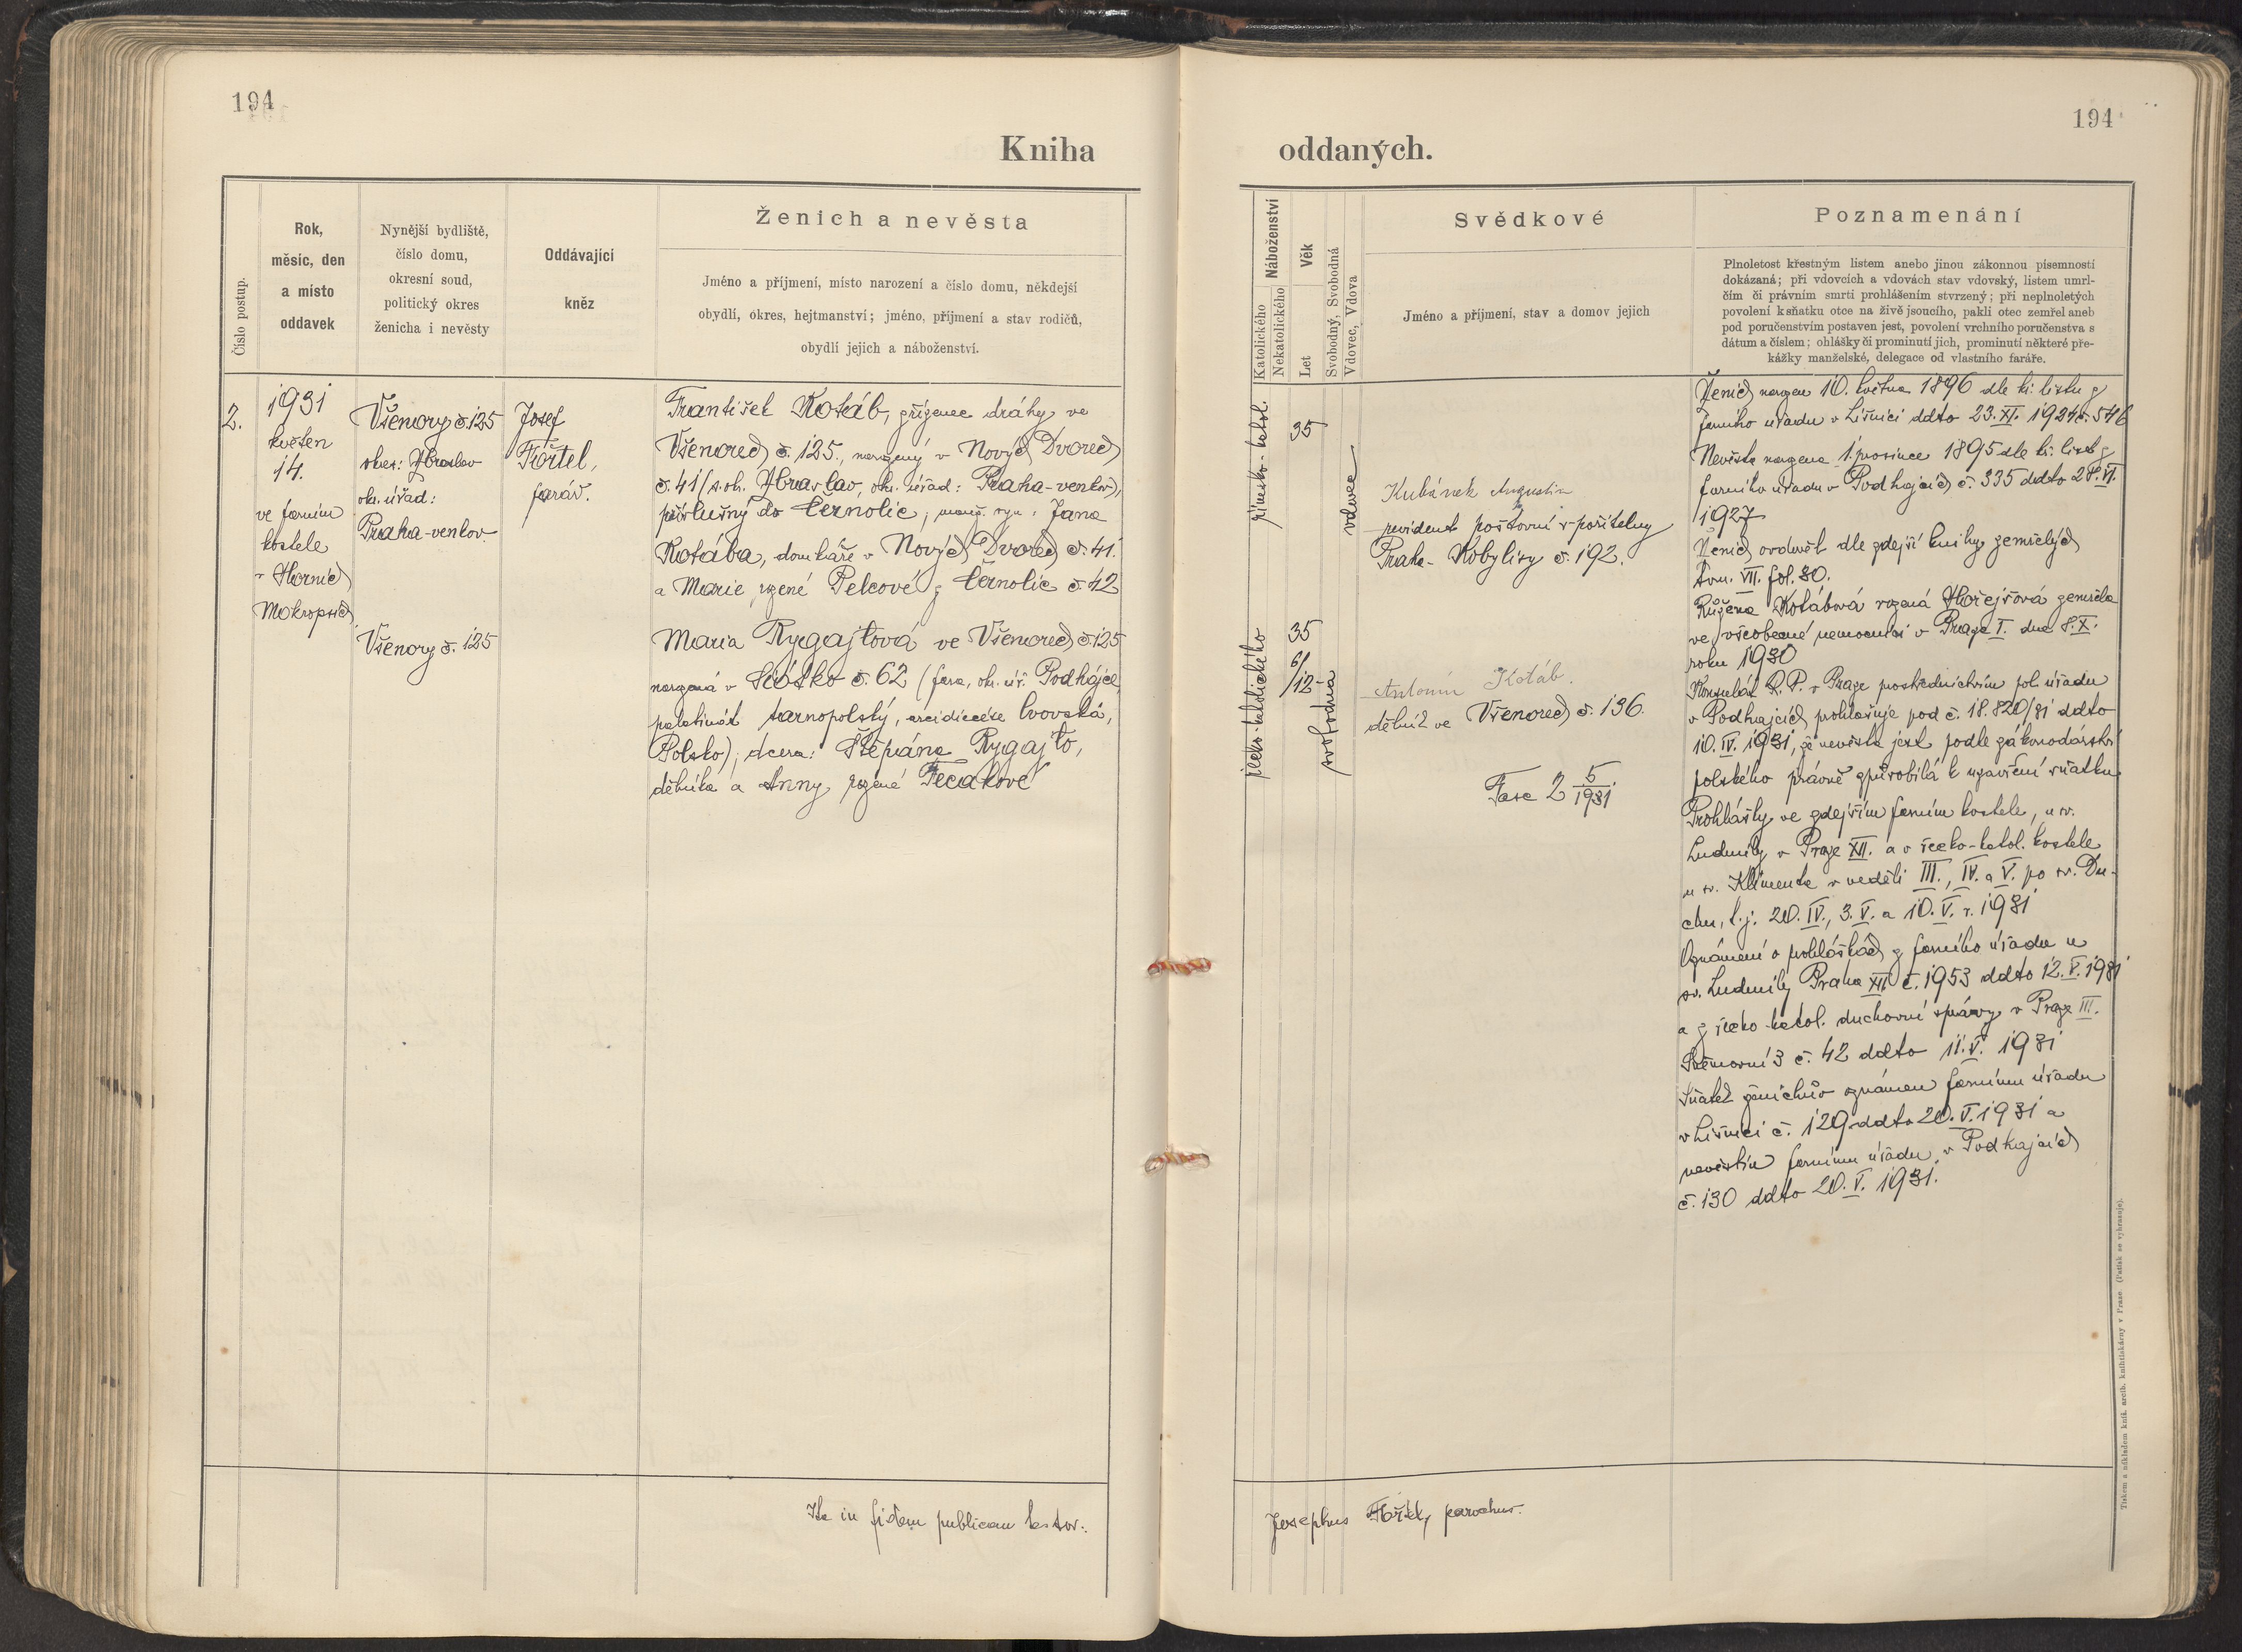 194
Kniha
Číslo postup.
Rok,
měsíc, den
a místo
oddavek
Nynější bydliště,
číslo domu,
okresní soud,
politický okres
ženicha i nevěsty
Oddávající
kněz
Ženich a nevěsta
Jméno a příjmení, místo narození a číslo domu, někdejší
obydlí, okres, hejtmanství; jméno, příjmení a stav rodičů,
obydlí jejich a náboženství.
2.
1931
květen
14.
ve farním
kostele
v Horních
Mokropsích
Všenory č. 125
okres: Zbraslav
ok. úřad:
Praha-venkov.
Všenory č. 125
Josef
Fořtel,
farář.
František Kotáb, zřízenec dráhy ve
Všenorech č. 125., narozený v Nových Dvorech
č. 41 (s. ok. Zbraslav, ok. úřad: Praha-venkov),
příslušný do Černolic; manž. syn: Jana
Kotába, domkáře v Nových Dvorech č. 41.
a Marie rozené Pelcové z Černolic č. 42
Maria Rygajłová ve Všenorech č. 125
narozená v Siółko č. 62 (fara, ok. úř. Podhájce,
palatinát tarnopolský, arcidiecése lvovská,
Polsko); dcera: Štěpána Rygajło,
dělníka a Anny rozené Fecakové
Ita in fidem publicam testor:
194
oddaných.
Náboženství
Katolického
Nekatolického
Věk
Let
Svobodný, Svobodná
Vdovec, Vdova
Svědkové
Jméno a příjmení, stav a domov jejich
Poznamenání
Plnoletost křestným listem anebo jinou zákonnou písemností
dokázaná; při vdovcích a vdovách stav vdovský, listem umrl-
čím či právním smrti prohlášením stvrzený; při neplnoletých
povolení k sňatku otce na živě jsoucího, pakli otec zemřel aneb
pod poručenstvím postaven jest, povolení vrchního poručenstva s
dátum a číslem; ohlášky či prominutí jich, prominutí některé pře-
kážky manželské, delegace od vlastního faráře.
římsko-katol.
35
vdovec
řecko-katolického
35
6/12
svobodna
Kubánek Augustin
revident poštovní spořitelny
Praha-Kobylisy č. 192.
Antonín Kotáb.
dělník ve Všenorech č. 136.
Fasc 2 5/1931
Ženich narozen 10. května 1896 dle kř. listu z
farního úřadu v Líšnici ddto 23. XI. 1924 č. 546
Nevěsta narozena 1. prosince 1895 dle kř. listu z
farního úřadu v Podhajcích č. 335 ddto 28. VI.
1927
Ženich ovdověl dle zdejší knihy zemřelých
tom. VII. fol. 80.
Růžena Kotábová rozená Hořejšová zemřela
ve všeobecné nemocnici v Praze I. dne 8. X.
roku 1930
Konsulát R. P. v Praze prostřednictvím pol. úřadu
v Podhajcích prohlašuje pod č. 18.820/31 ddto
10. IV. 1931, že nevěsta jest podle zákonodárství
polského právně způsobilá k uzavření sňatku
Prohlášky ve zdejším farním kostele, u sv.
Ludmily v Praze XII. a v řecko-katol. kostele
u sv. Klimenta v neděli III., IV. a V. po sv. Du-
chu, t. j. 20. IV., 3. V. a 10. V. r. 1931
Oznámení o prohláškách z farního úřadu u
sv. Ludmily Praha XII. č. 1953 ddto 12. V. 1931
a z řecko-katol. duchovní správy v Praze III.
č. 42 ddto 11. V. 1931
Sňatek ženichův oznámen farnímu úřadu
v Líšnici č. 129 ddto 20. V. 1931 a
nevěstin farnímu úřadu v Podhajcích
č. 130 ddto 20. V. 1931.
Josephus Fořtel, parochus.
Tiskem a nákladem kníž. arcib. knihtiskárny v Praze. (Patisk se vyhrazuje).